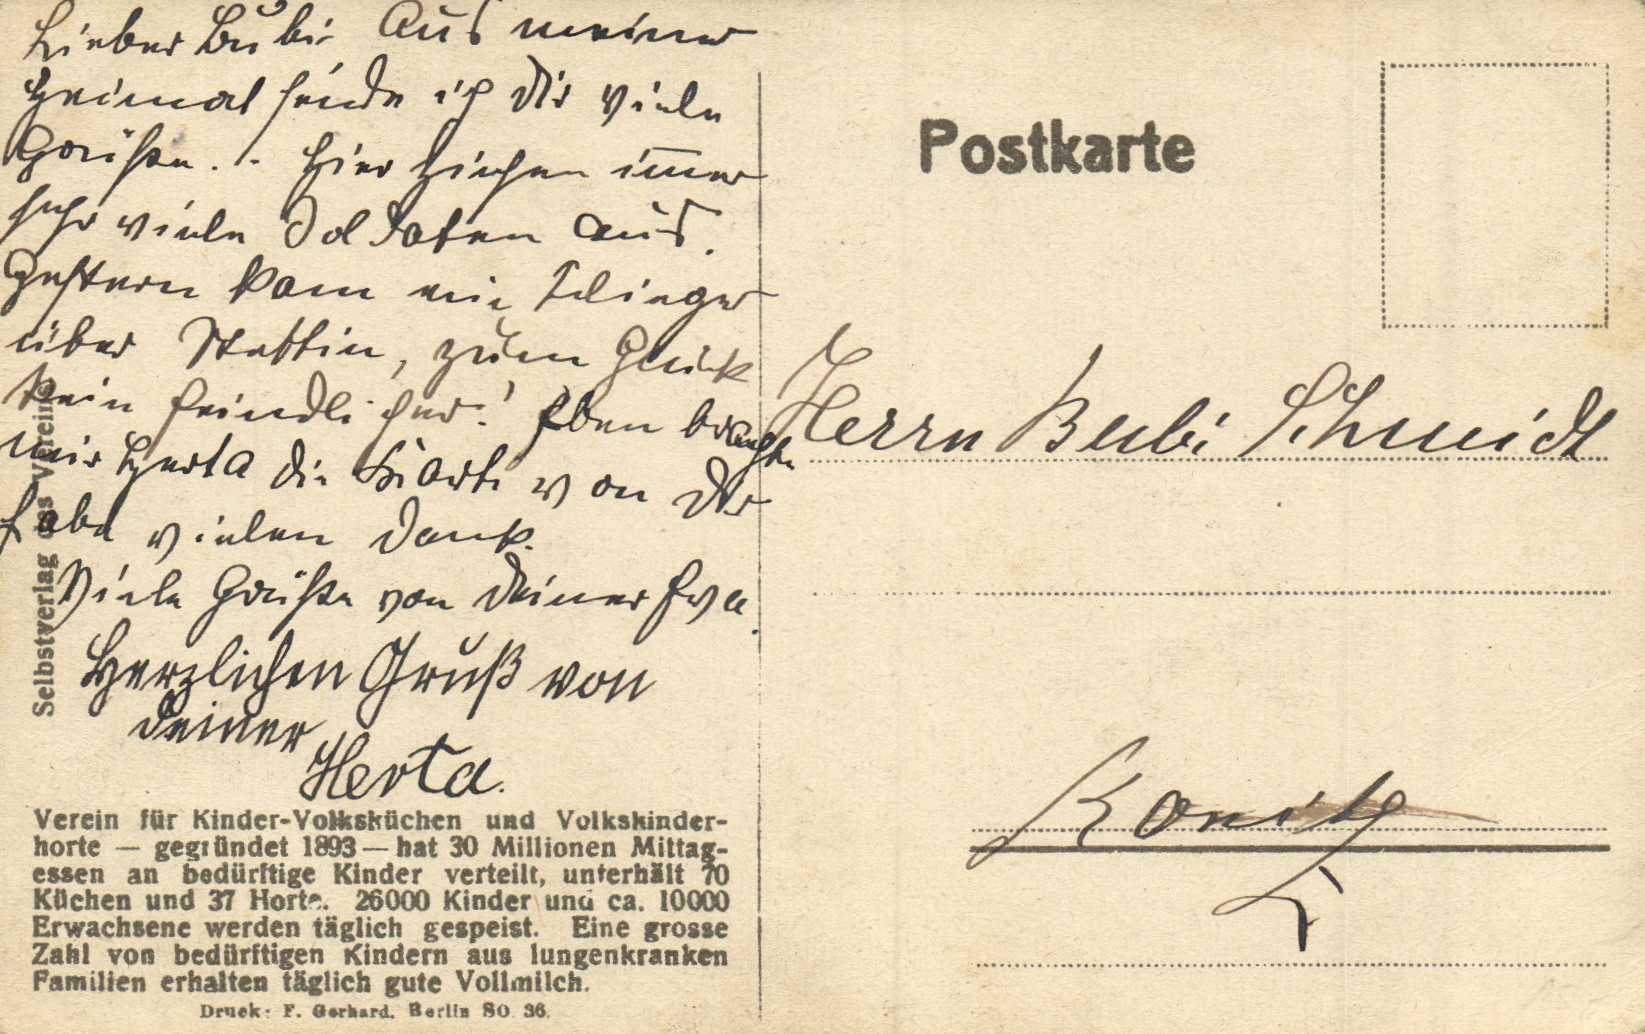 Lieber Bubi. Aus meiner
Heimat sende ich Dir viele
Grüße. - Hier ziehen im̅er
sehr viele Soldaten aus.
Gestern kam ein Flieger
über Stettin, zum Glück
kein feindlicher! Eben brachte
mir Herta die Karte von Dir
habe vielen Dank.
Viele Grüße von Deiner Eva.
Herzlichen Gruß von
Deiner
Herta.
Selbstverlag des Vereins
Verein für Kinder-Volksküchen und Volkskinder-
horte — gegründet 1893 — hat 30 Millionen Mittag-
essen an bedürftige Kinder verteilt, unterhält 70
Küchen und 37 Horte. 26000 Kinder und ca. 10000
Erwachsene werden täglich gespeist. Eine grosse
Zahl von bedürftigen Kindern aus lungenkranken
Familien erhalten täglich gute Vollmilch.
Druck: F. Gerhard, Berlin SO 36.
Postkarte
Herrn Bubi Schmidt
Konitz